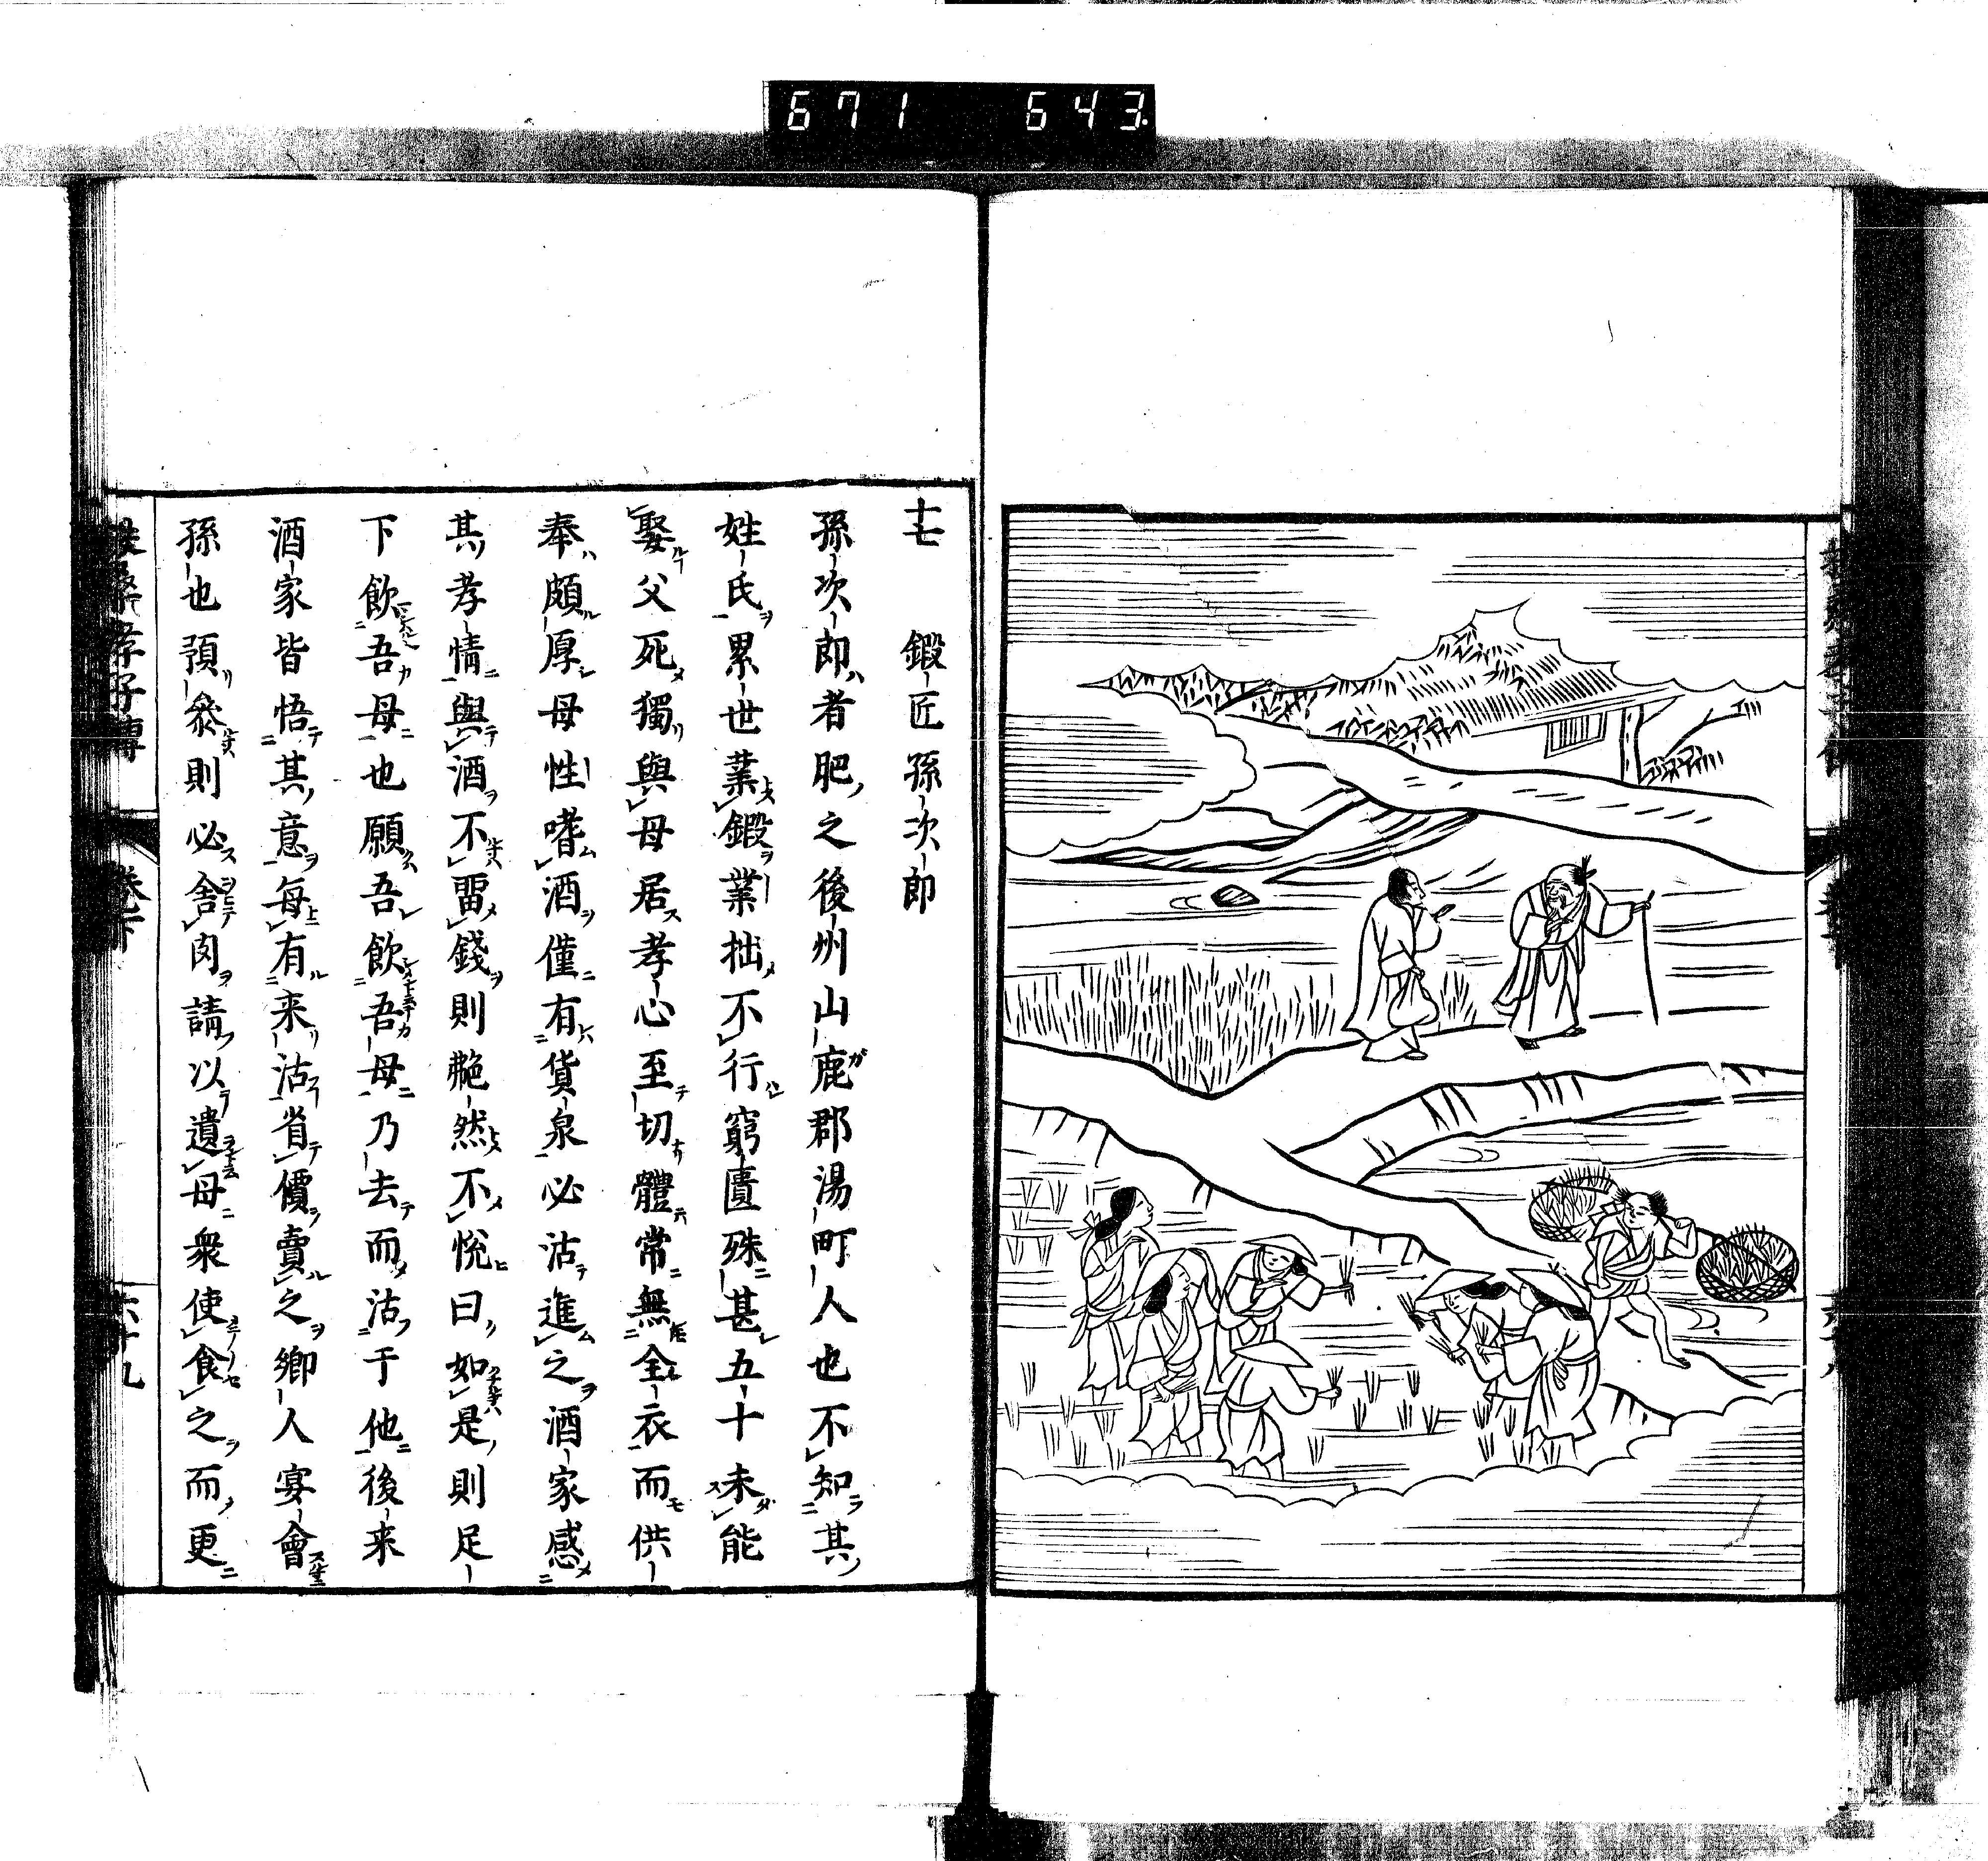 671 643
十七 鍛匠孫次郎
孫次郎者肥之後州山鹿郡湯町人也不知其
姓氏累世業鍛業拙不行窮匱殊甚五十未能
娶父死獨與母居孝心至切體常無全衣而供
奉頗厚母性嗜酒僅有貨泉必沽進之酒家感
其孝情與酒不畱錢則艴然不悅曰如是則足
下飲吾母也願吾飲吾母乃去而沽于他後来
酒家皆悟其意每有来沽省價賣之鄉人宴會
孫也預叅則必舍肉請以遺母衆使食之而更
孝子傳
卷下
六十九